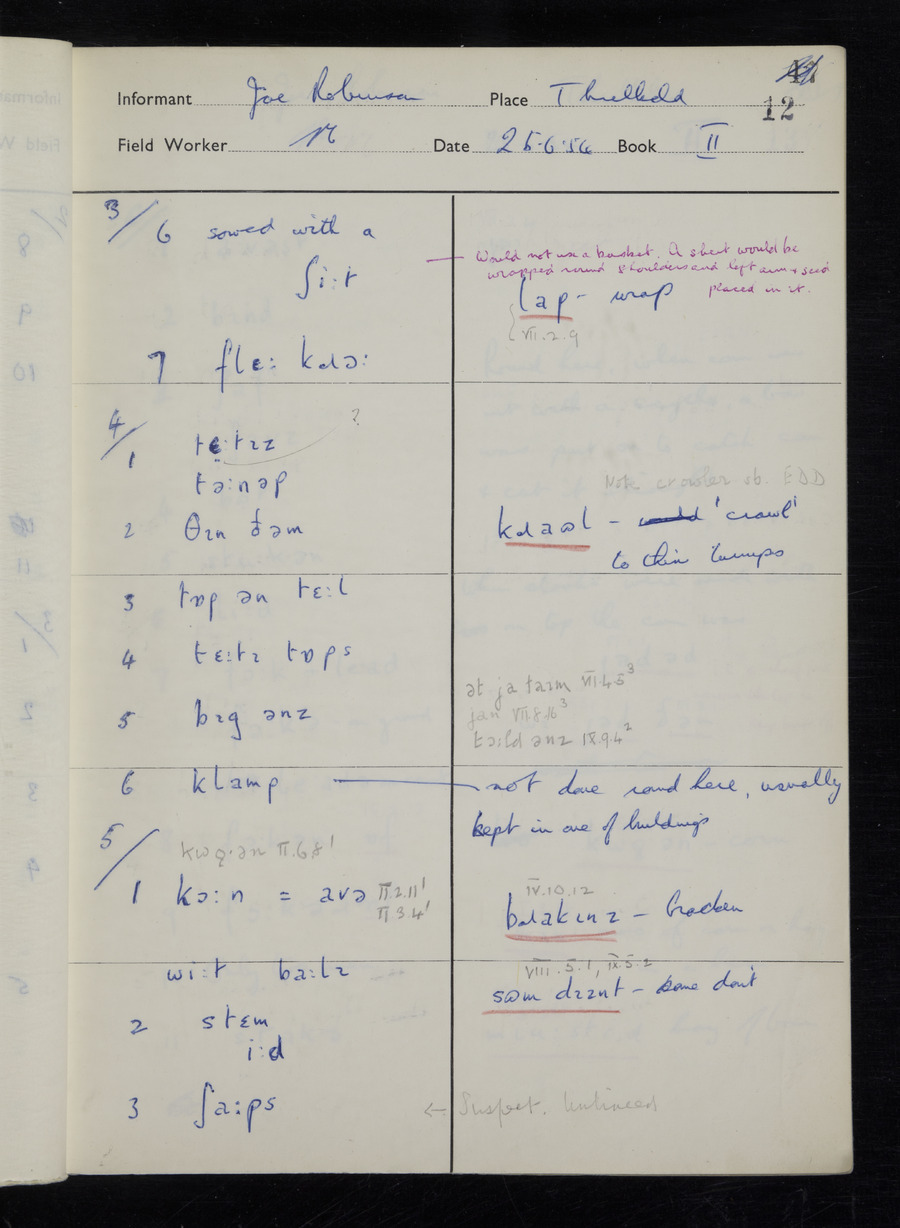 12
Informant Joe Robinson Place Threlkeld
Field Worker Date 25.6.56 Book II
3/ 6 sowed with a
ʃi:t
Would not use a basket. A sheet would be
wrapped round shoulders and left arm & seed
placed in it.
lap - wrap
VII.2.9
7 flɛ: kɹə:
4/
1 te:tɪz ?
tə:nəp
Note crowler sb. EDD
2 θɪn ðəm
kɹaəl - 'crawl'
to thin turnips
3 tɒp ən tɛ:l
4 tɛ:tɪ tɒps
ət ja taɪm VII.4.5³
jan VII.8.16³
5 bɪg ənz
tɔ:ld ənz IX.9.4²
6 klamp — not done round here, usually
kept in one of buildings
5/
II.6.8¹
1 kɔ:n = avə II.2.11¹
II 3.4¹
IV.10.12
bɹakɪnz - bracken
wi:t ba:lɪ
VIII.5.1, IX.5.2
sɷm dɪznt - some don't
2 stɛm
i:d
3 ʃa:ps
← Suspect.